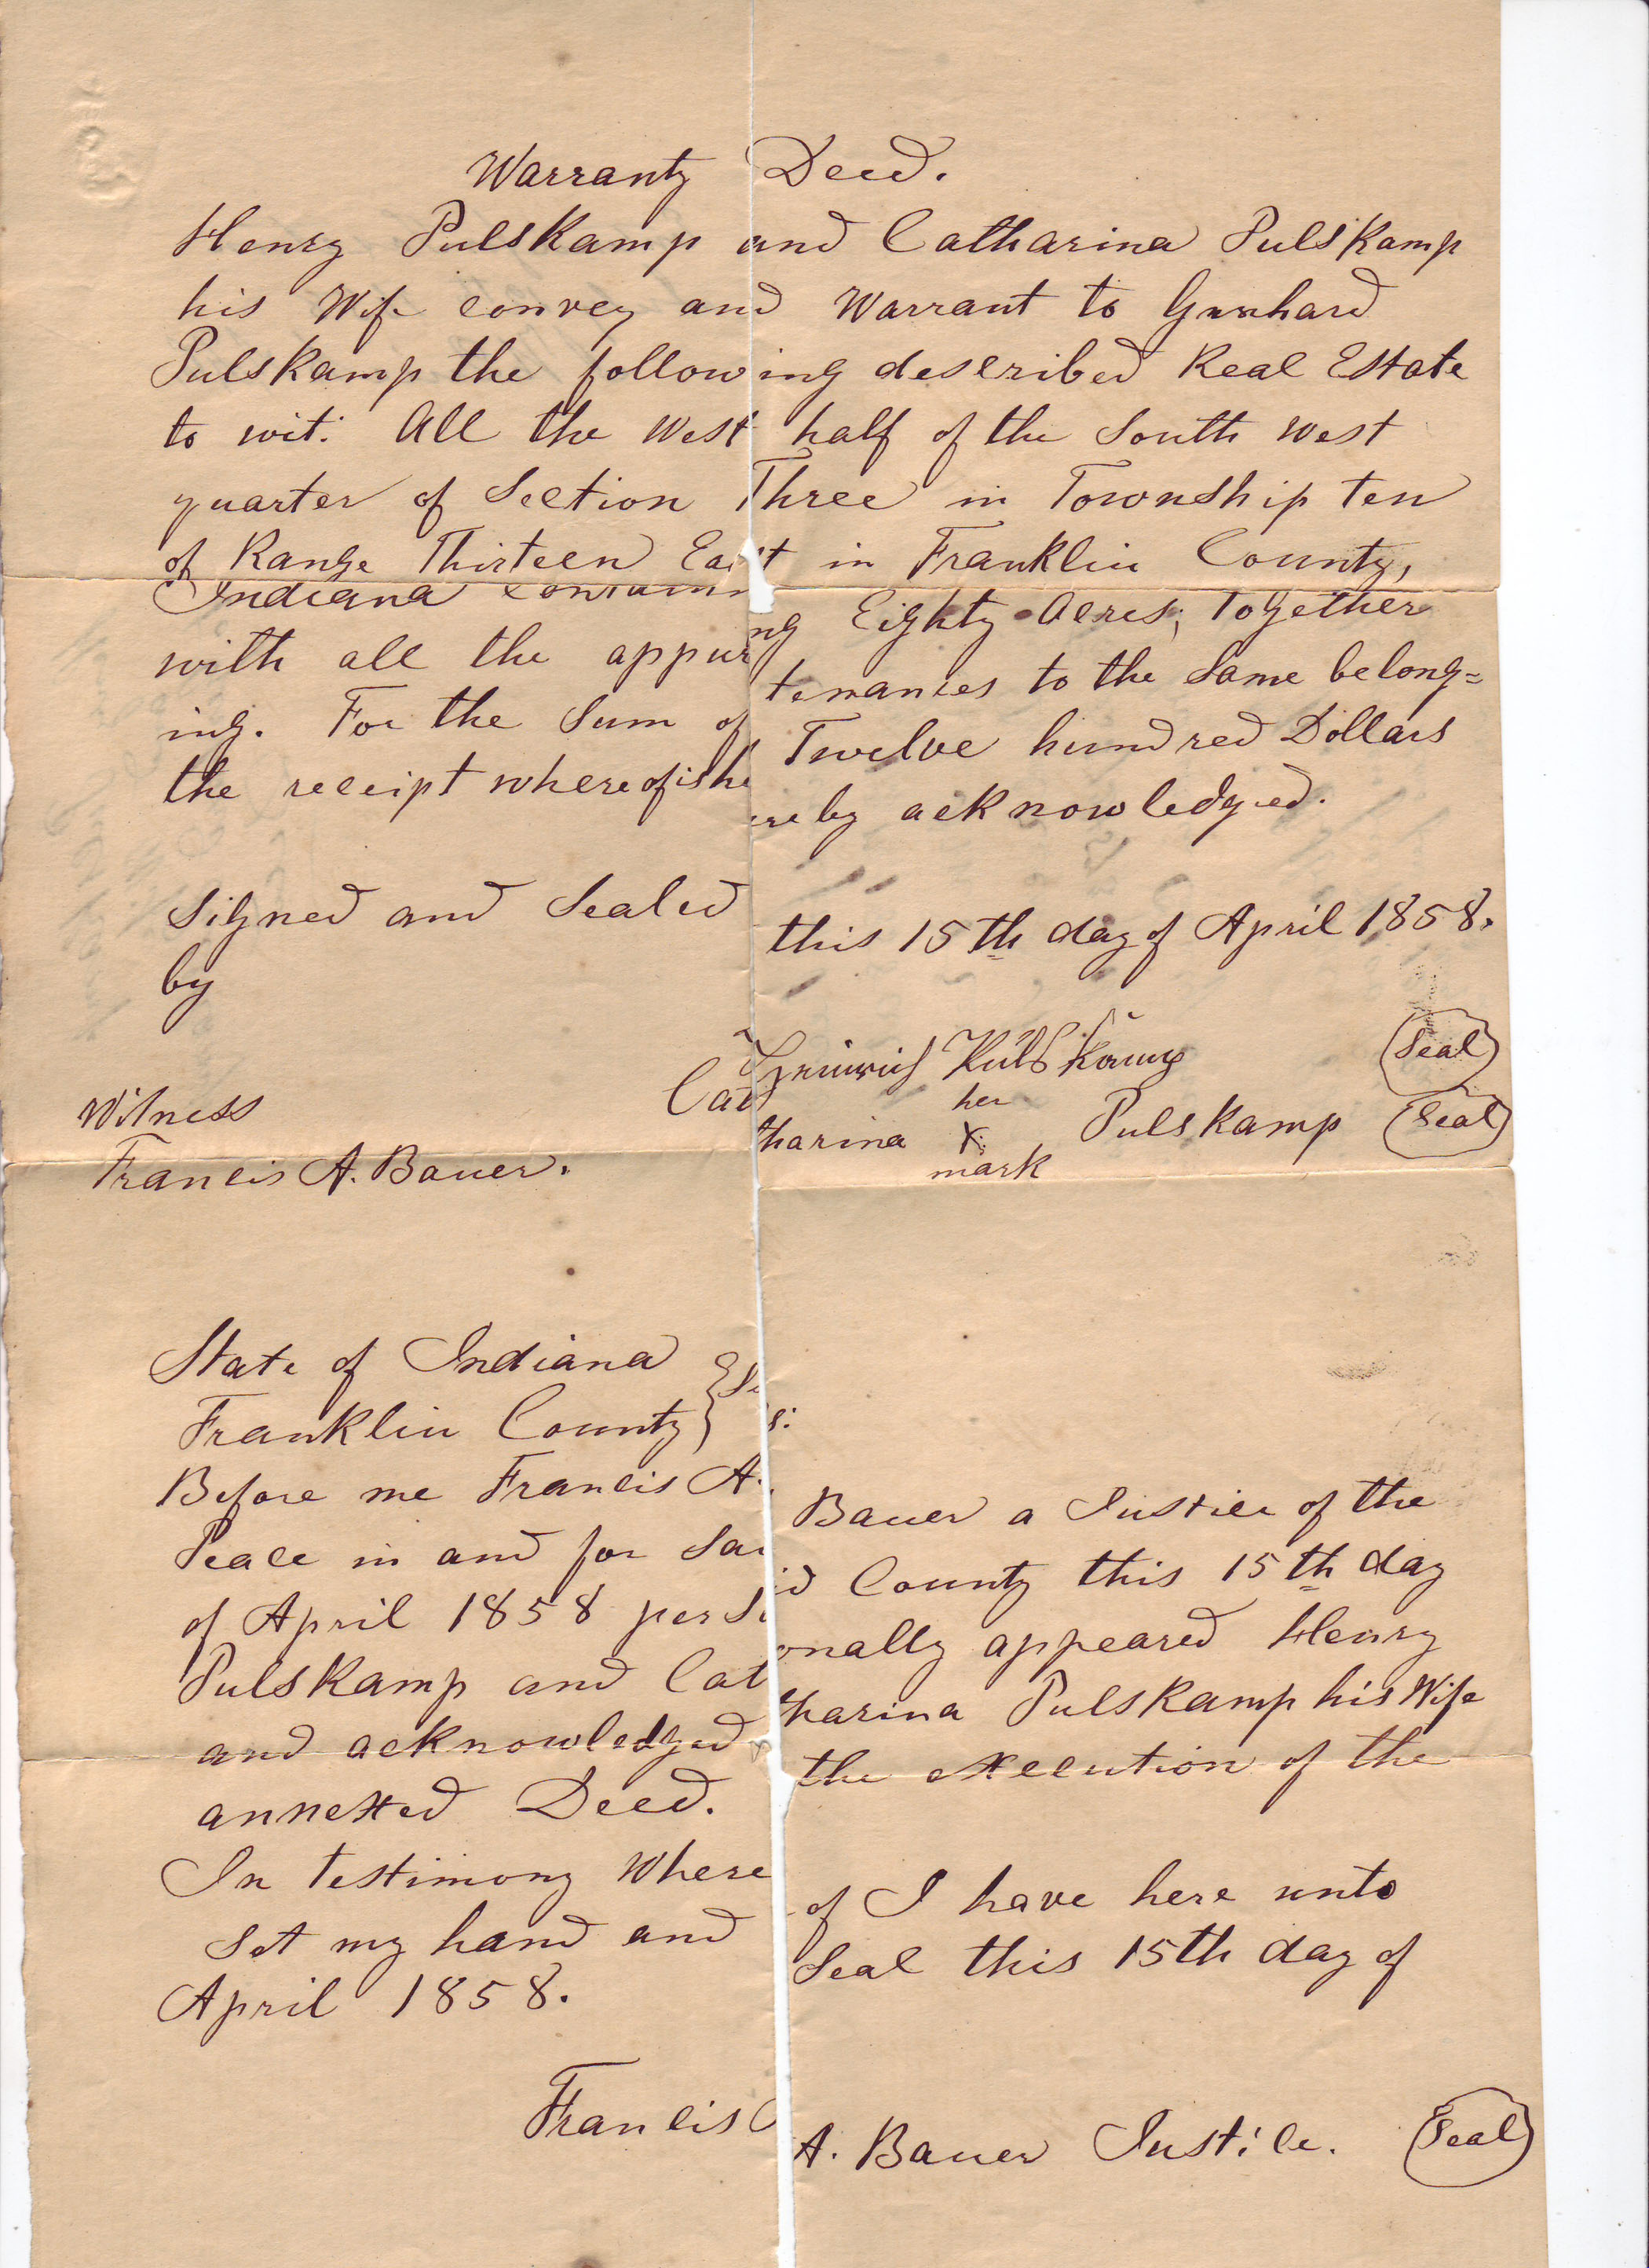 Warranty Deed.
Henry Pulskamp and Catharina Pulskamp
his Wife convey and Warrant to Gerhard
Pulskamp the following described Real Estate
to wit: All the West half of the South West
quarter of Section Three in Township ten
of Range Thirteen East in Franklin County,
Indiana containing Eighty Acres; Together
with all the appurtenances to the Same belong=
ing. For the Sum of Twelve hundred Dollars
the receipt where of is hereby acknowledged.
Signed and Sealed this 15th day of April 1858.
by
Heinrich Pulskamp (Seal)
her
Catharina X Pulskamp (Seal)
mark
Witness
Francis A. Bauer.
State of Indiana
Franklin County } Ss:
Before me Francis A. Bauer a Justice of the
Peace in and for Said County this 15th day
of April 1858 personally appeared Henry
Pulskamp and Catharina Pulskamp his Wife
and acknowledged the execution of the
annexed Deed.
In testimony Where of I have here unto
Set my hand and Seal this 15th day of
April 1858.
Francis A. Bauer Justice. (Seal)